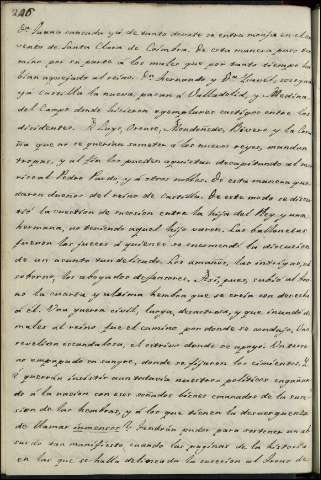 246
Dª Juana cansada ya de tanto decreto se entra monja en el con
vento de Santa Clara de Coimbra. De esta manera puso tér
mino por su parte a los males que por tanto tiempo ha
bian aquejado al reino. Dn. Fernando y Dª Isabel, sosega
ya Castilla la nueva, pasan a Valladolid, y Medina
del Campo donde hicieron ejemplares castigos entre los
disidentes. Lugo, Orense, Mondoñedo, Bivero y la Coru
ña que no se querian someter a los nuevos reyes, mandan
tropas, y al fin los pueden aquietar decapitando al ma
riscal Pedro Pardo, y á otros nobles. De esta manera que
daron dueños del reino de Castilla. De este modo se discu
tió la cuestion de sucesion entre la hija del Rey y una
hermana, no teniendo aquel hijo varon. Las ballonetas
fueron las jueces á quienes se encomendó la discusion
de un asunto tan delicado. Los amaños, las intrigas, el
soborno, los abogados defensores. Así, pues, subió al tro
no la cuarta y ultima hembra que se creía con derecho
á él. Una guerra civil, larga, desastrosa, y que inundó de
males al reino fue el camino por donde se condujo, una
revelion escandalosa, el estrivo donde se apoyó. Un terre
no empapado en sangre, donde se fijaron los cimientos. Y
á querrán insistir aun todavia nuestros politicos engañan
do á la nacion con esos soñados bienes emanados de la suce
sion de las hembras, y á los que tienen la desverguenza
de llamar inmensos? Tendrán pudor para sostener un ab
surdo tan manifiesto, cuando las paginas de la historia
en las que se halla delineada la sucesion al Trono de